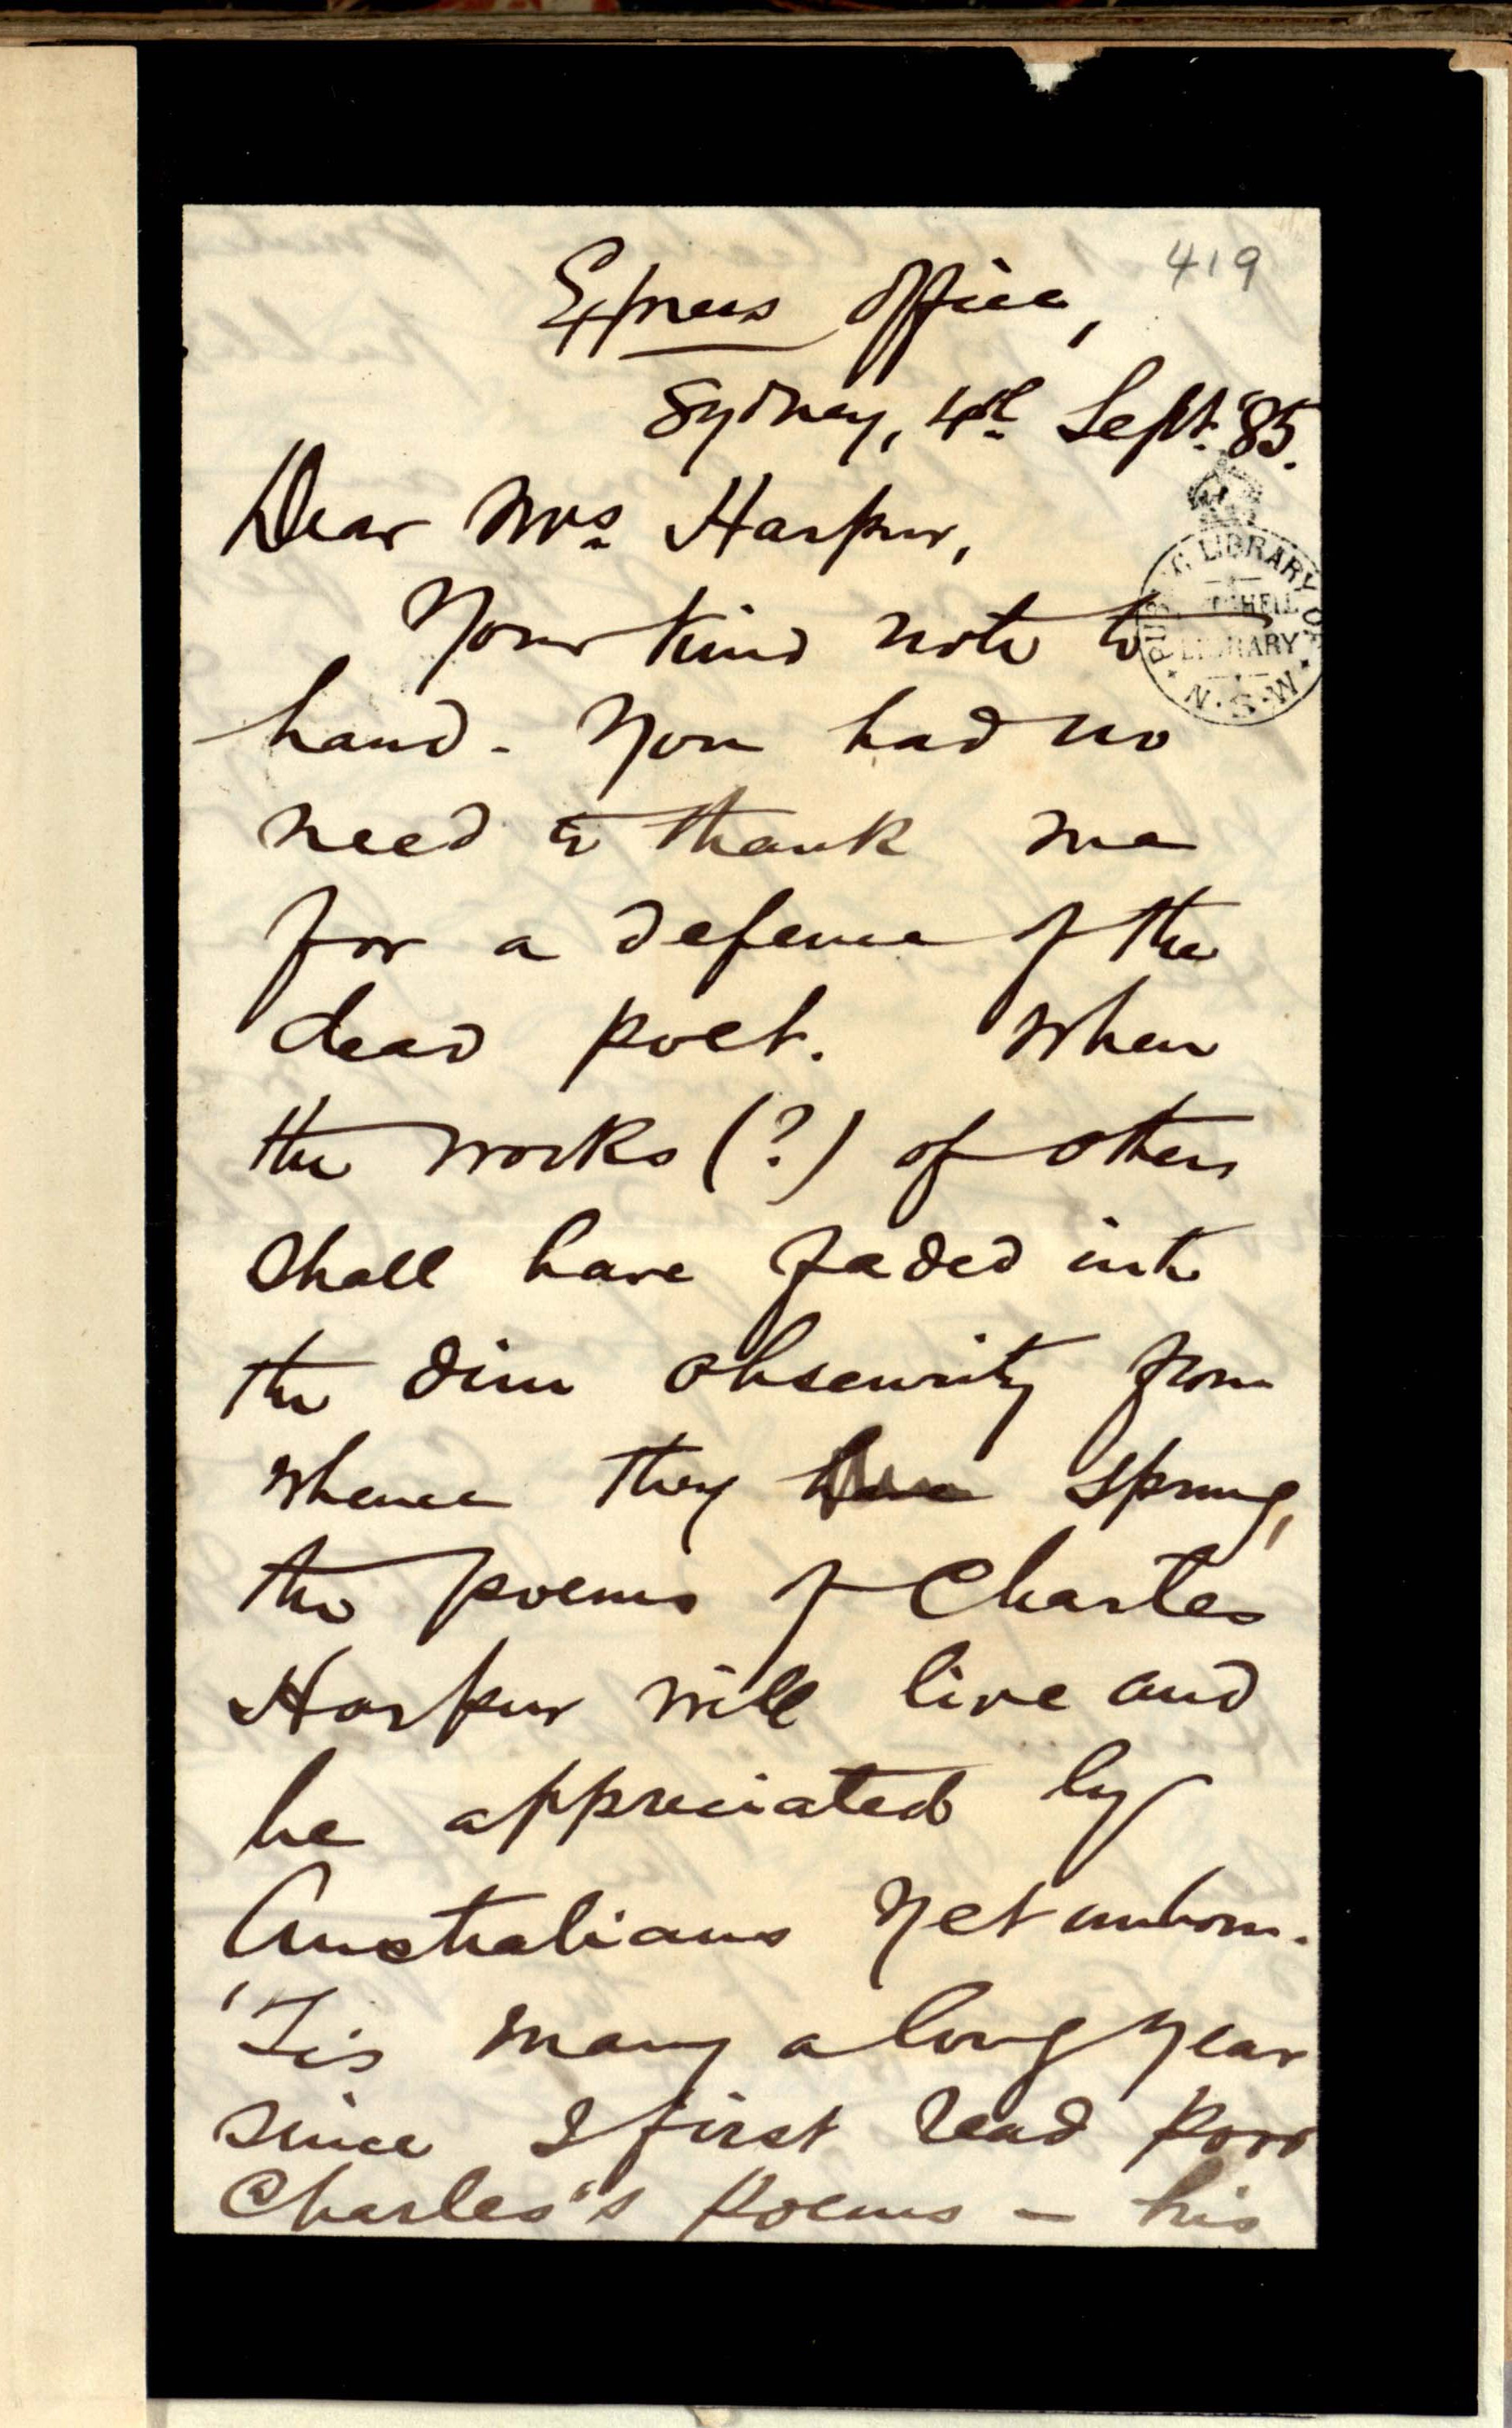 419
Express Office,
Sydney, 4th Sept. '85.
Dear Mrs Harpur,
Your kind note to
hand. You had no
need to thank me
for a defence of the
dead poet. When
the works (?) of others
shall have faded into
the dim obscurity from
whence they have sprung,
the poems of Charles
Harpur will live and
be appreciated by
Australians yet unborn.
'Tis many a long year
since I first read poor
Charles's poems - his
PUBLIC LIBRARY OF
MITCHELL
LIBRARY
N.S.W